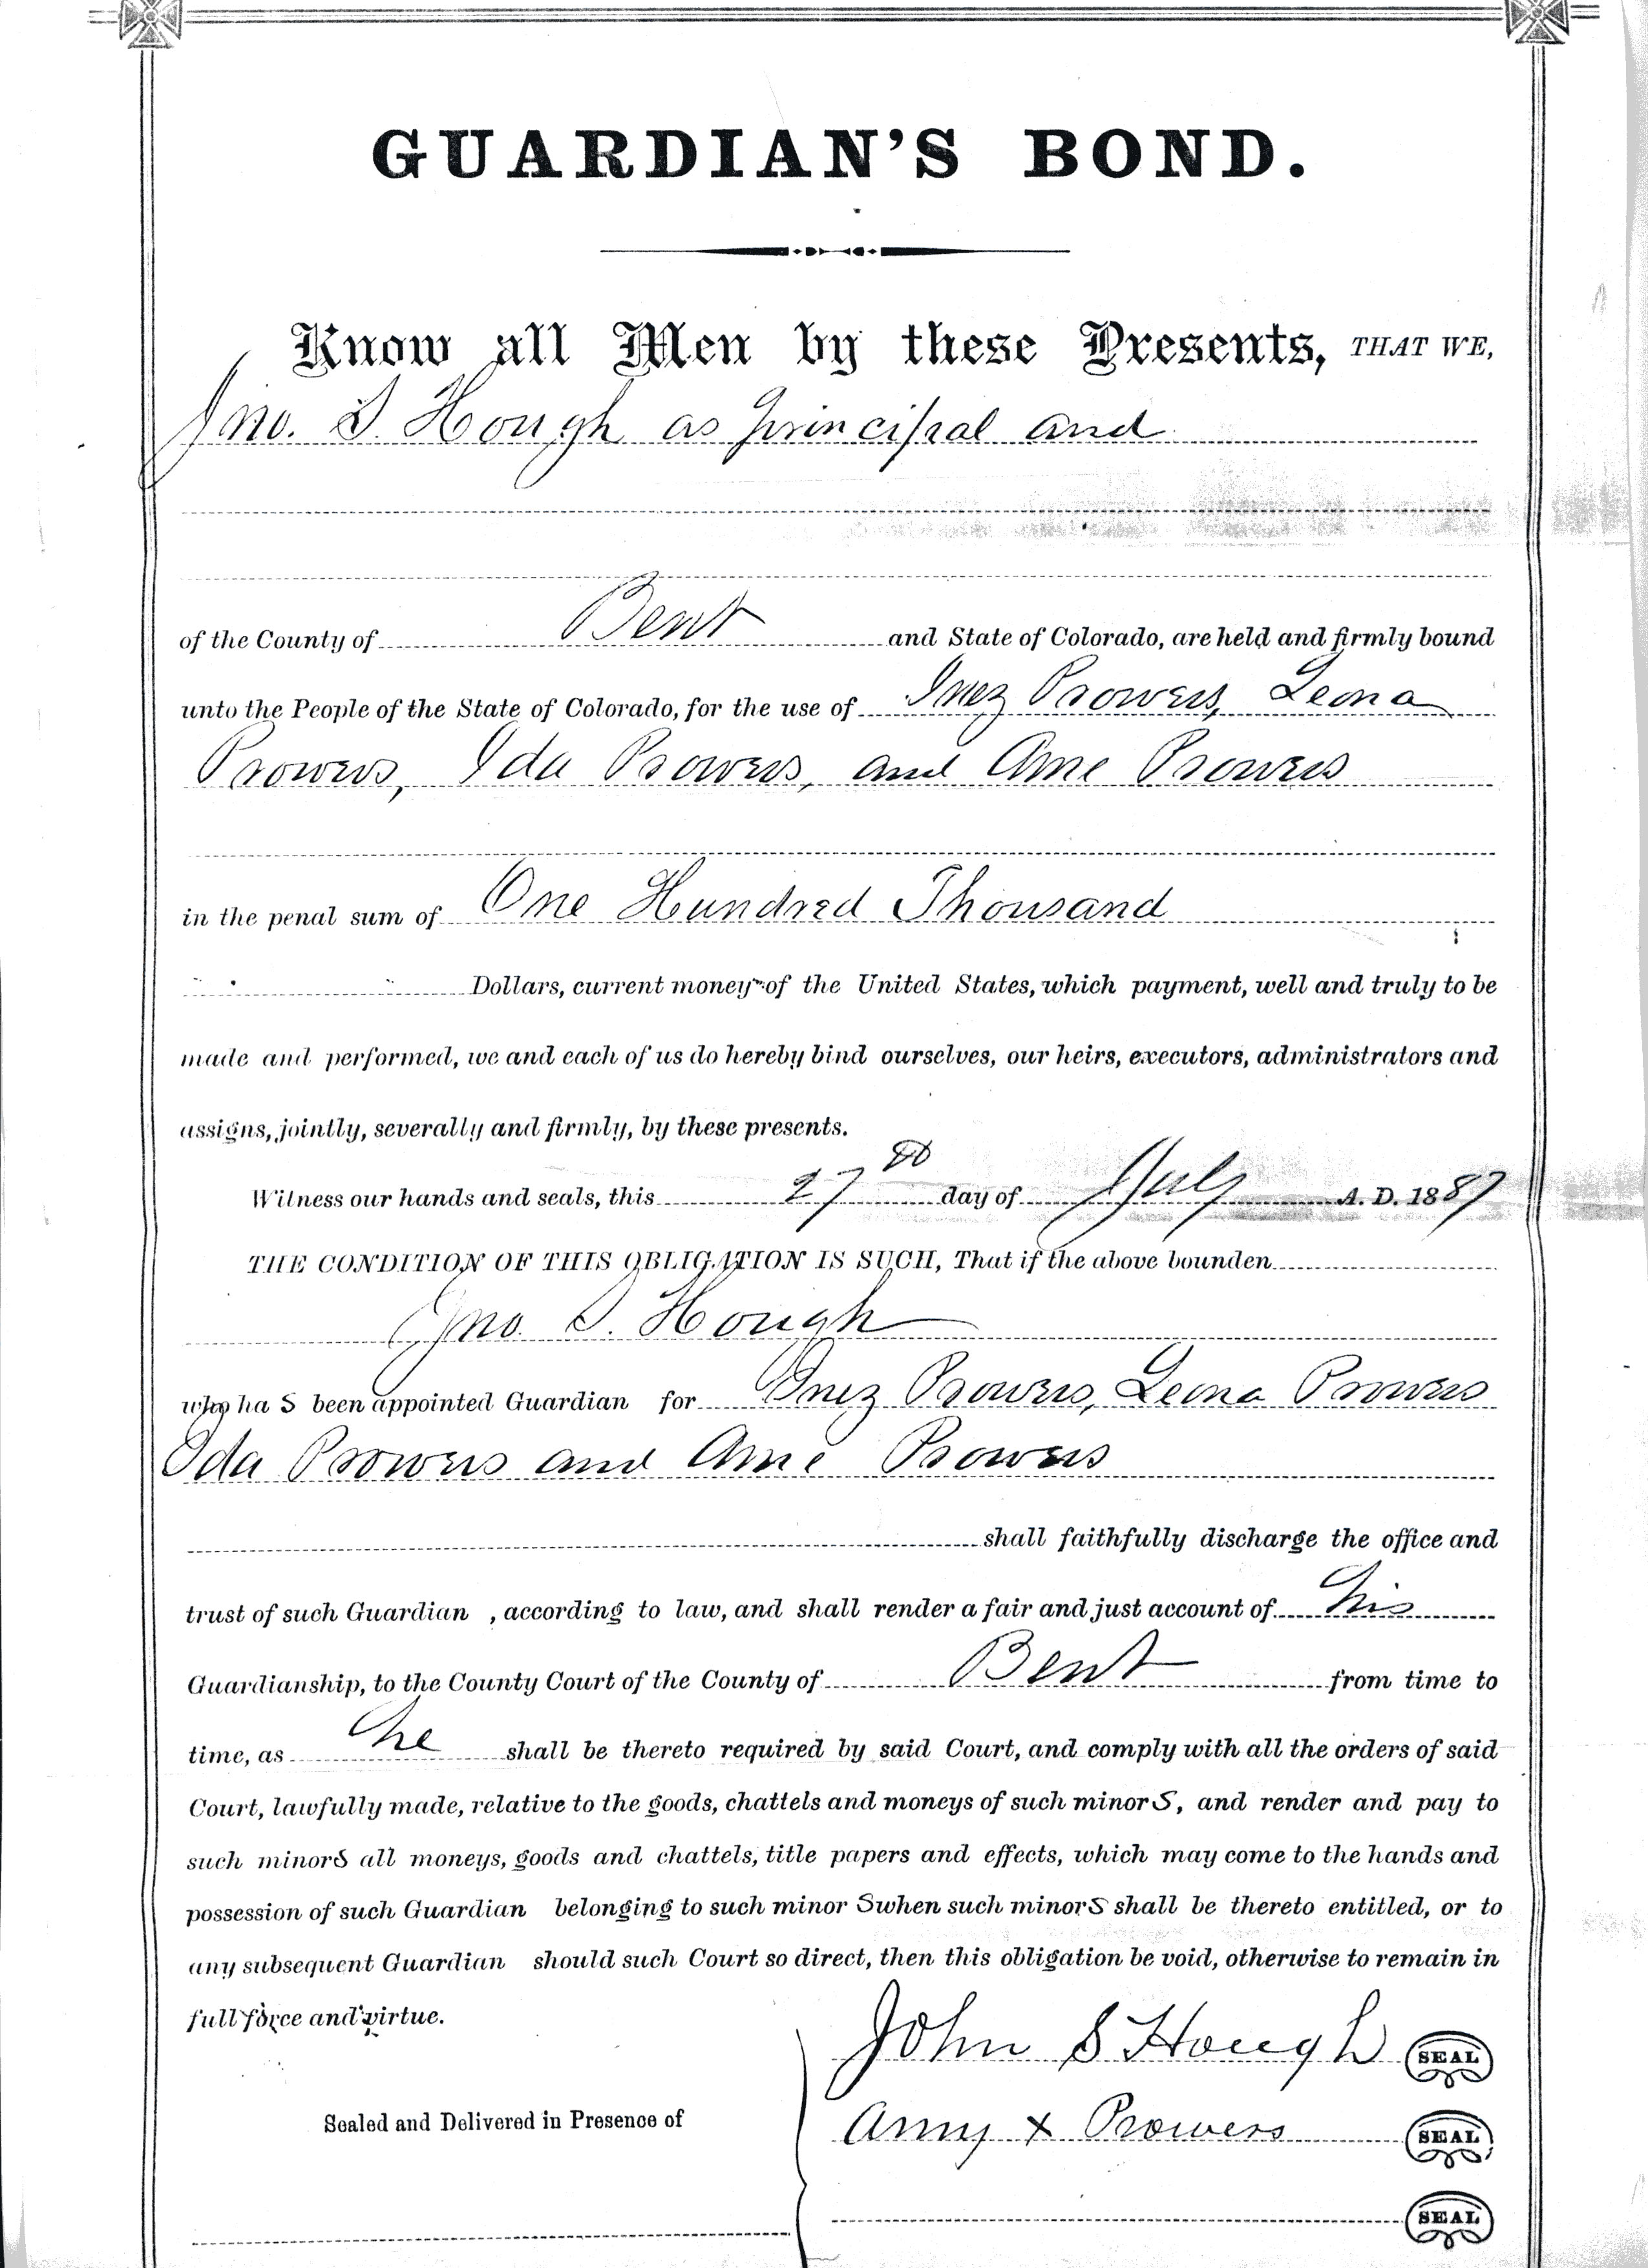 GUARDIAN'S BOND.
Know all Men by these Presents, THAT WE,
Jno. S. Hough as principal and
of the County of Bent and State of Colorado, are held and firmly bound
unto the People of the State of Colorado, for the use of Inez Prowers, Leona
Prowers, Ida Prowers, and Ame Prowers
in the penal sum of One Hundred Thousand
Dollars, current money of the United States, which payment, well and truly to be
made and performed, we and each of us do hereby bind ourselves, our heirs, executors, administrators and
assigns, jointly, severally and firmly, by these presents.
Witness our hands and seals, this 27th day of July A. D. 1887
THE CONDITION OF THIS OBLIGATION IS SUCH, That if the above bounden
Jno. S. Hough
who ha S been appointed Guardian for Inez Prowers, Leona Prowers
Ida Prowers and Ame Prowers
shall faithfully discharge the office and
trust of such Guardian , according to law, and shall render a fair and just account of his
Guardianship, to the County Court of the County of Bent from time to
time, as he shall be thereto required by said Court, and comply with all the orders of said
Court, lawfully made, relative to the goods, chattels and moneys of such minorS, and render and pay to
such minorS all moneys, goods and chattels, title papers and effects, which may come to the hands and
possession of such Guardian belonging to such minor S when such minorS shall be thereto entitled, or to
any subsequent Guardian should such Court so direct, then this obligation be void, otherwise to remain in
full force and virtue.
John S Hough SEAL
Sealed and Delivered in Presence of
Amy x Prowers SEAL
SEAL